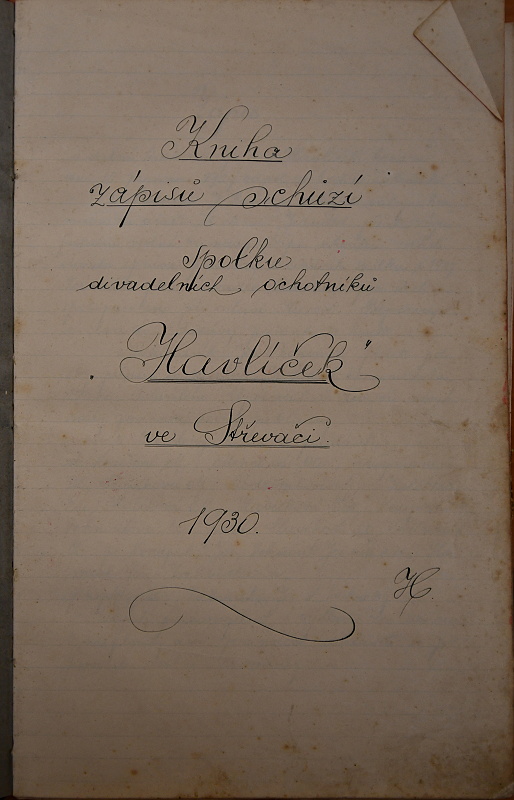 Kniha
zápisů schůzí
spolku
divadelních ochotníků
„Havlíček"
ve Střevači.
1930.
H.